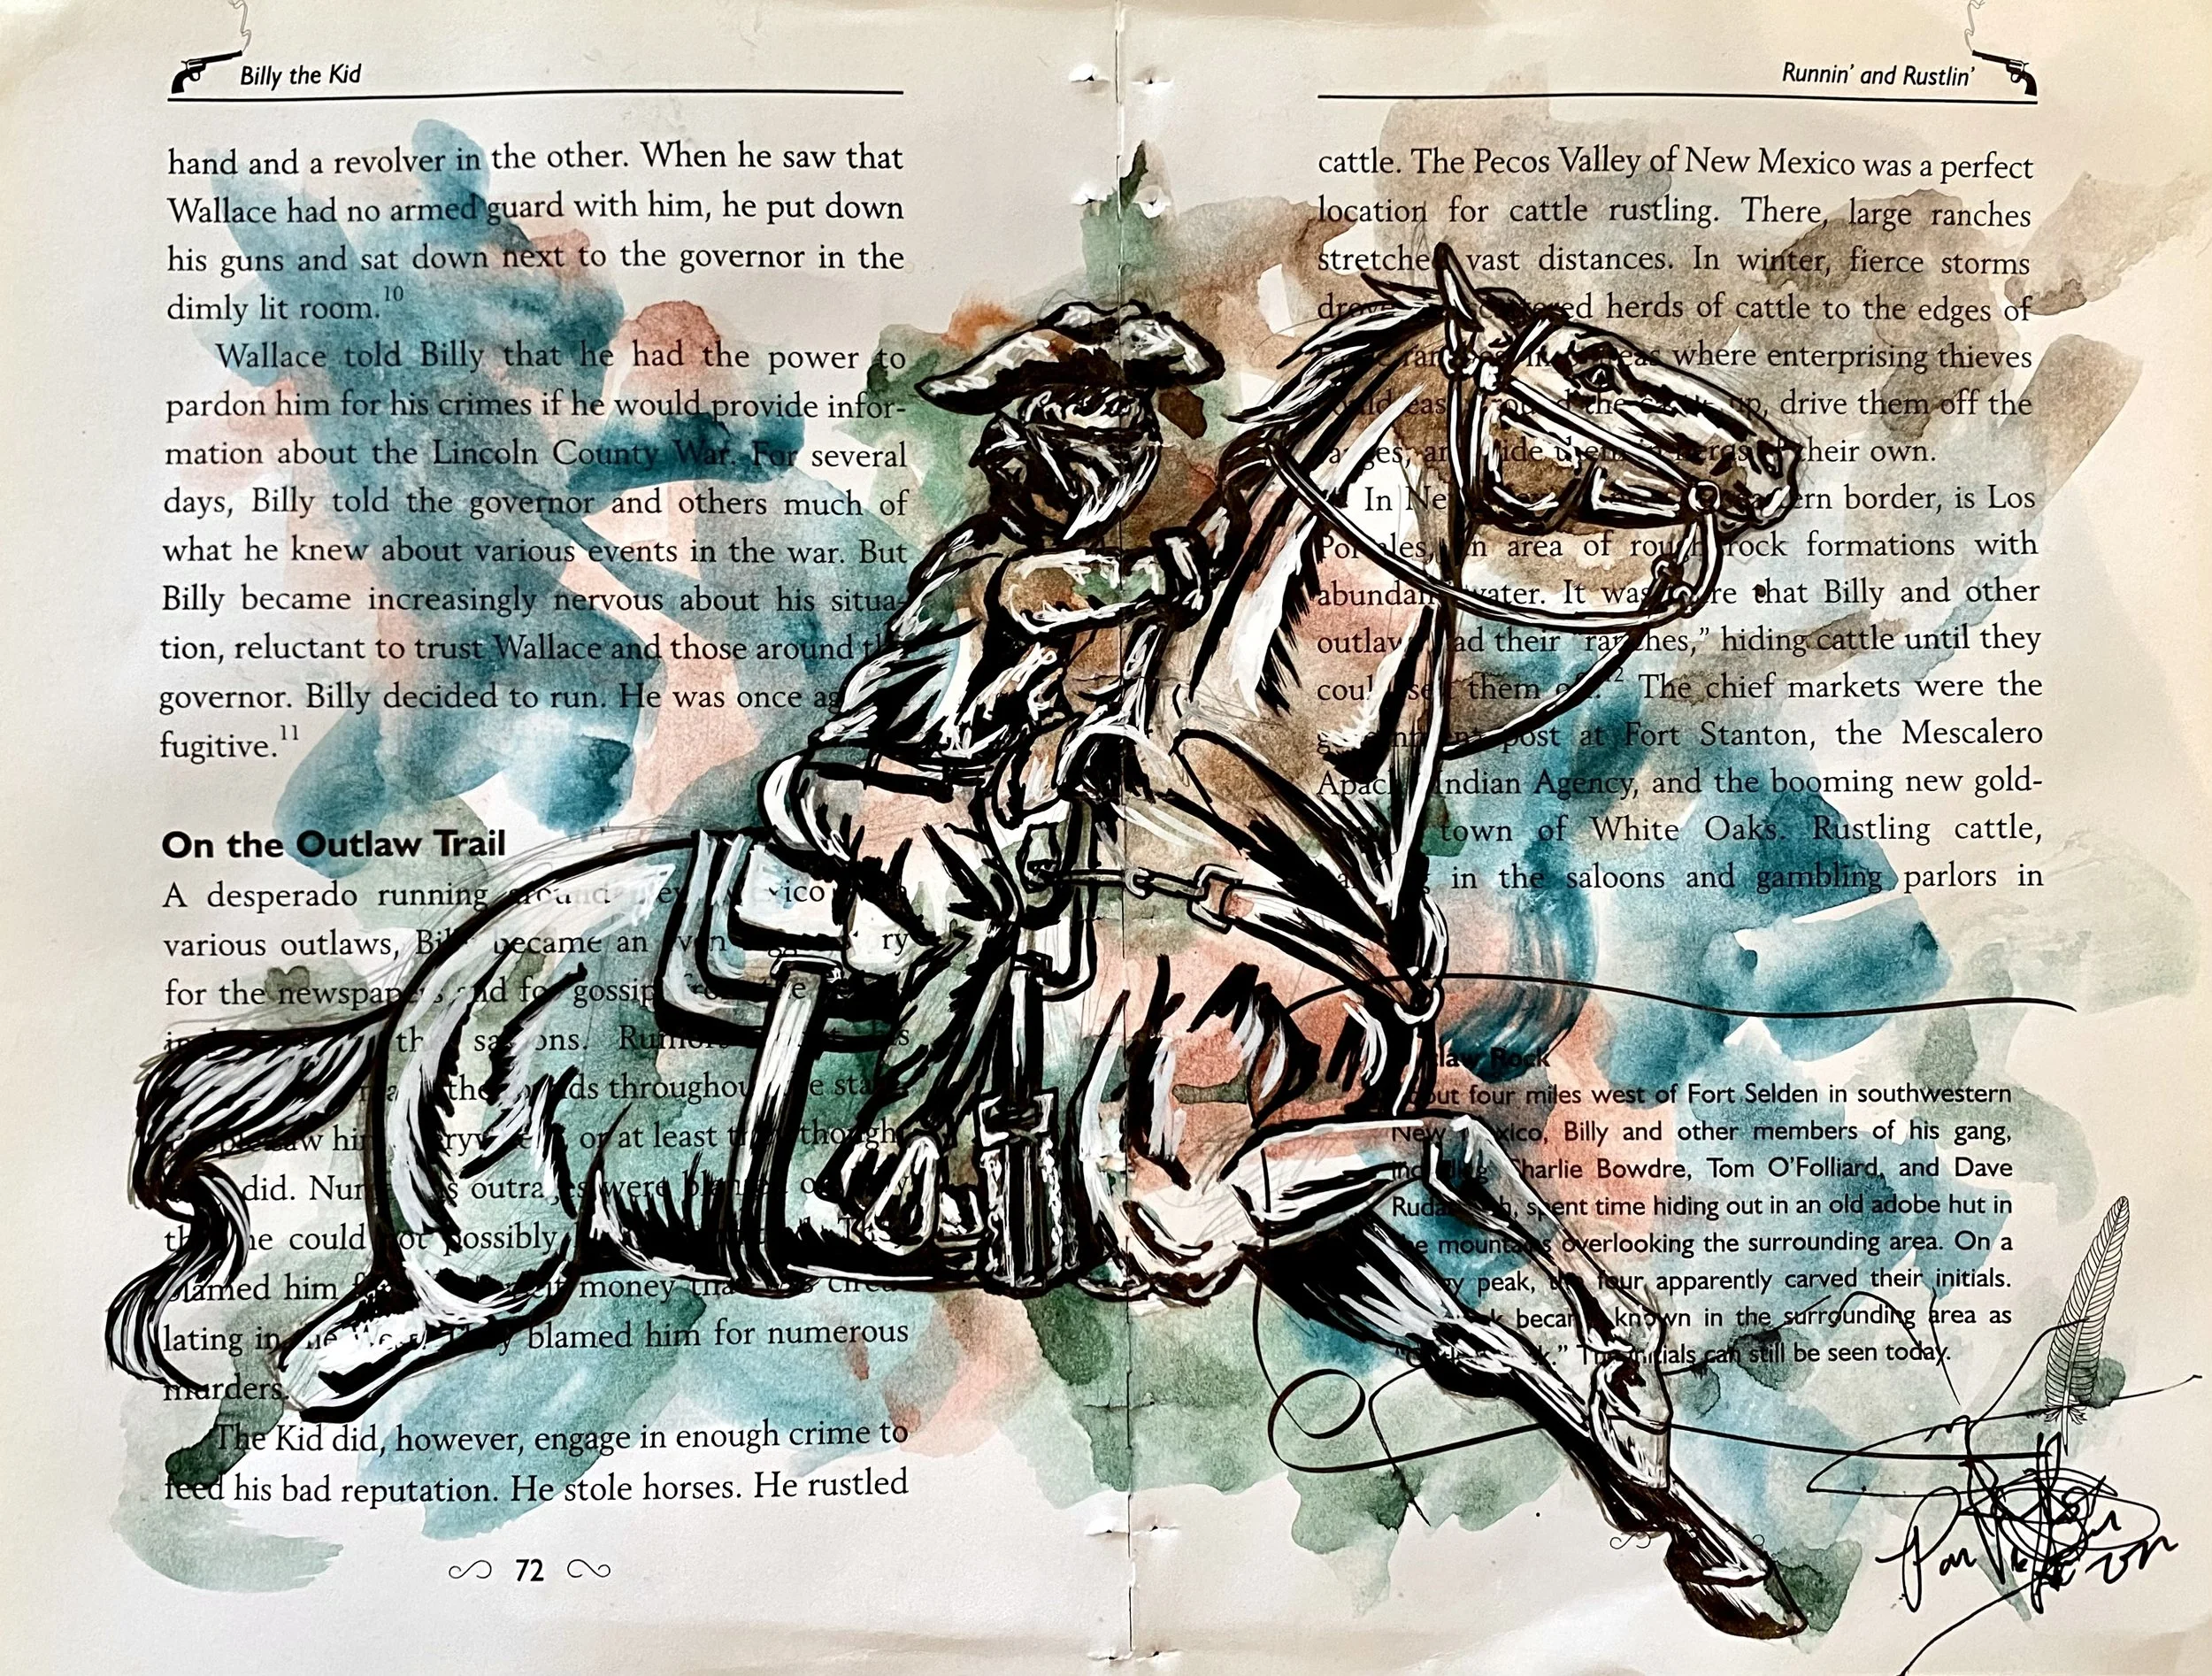 Billy the Kid
hand and a revolver in the other. When he saw that
Wallace had no armed guard with him, he put down
his guns and sat down next to the governor in the
dimly lit room.10
Wallace told Billy that he had the power to
pardon him for his crimes if he would provide infor-
mation about the Lincoln County War. For several
days, Billy told the governor and others much of
what he knew about various events in the war. But
Billy became increasingly nervous about his situa-
tion, reluctant to trust Wallace and those around
governor. Billy decided to run. He was once
fugitive.11
On the Outlaw Trail
A desperado running around
various outlaws, became an
for the newspapers and for gossip
the
throughout
at least
did. outrages were
he could not possibly
blamed him money
lating in blamed him for numerous
murders.
The Kid did, however, engage in enough crime to
feed his bad reputation. He stole horses. He rustled
72
Runnin' and Rustlin'
cattle. The Pecos Valley of New Mexico was a perfect
location for cattle rustling. There, large ranches
stretched vast distances. In winter, fierce storms
herds of cattle to the edges of
where enterprising thieves
up, drive them off the
their own.
In border, is Los
area of rough rock formations with
abundant water. It was that Billy and other
had their "ranches," hiding cattle until they
them 12 The chief markets were the
post at Fort Stanton, the Mescalero
Apache Indian Agency, and the booming new gold-
town of White Oaks. Rustling cattle,
in the saloons and gambling parlors in
Rock
four miles west of Fort Selden in southwestern
New Mexico, Billy and other members of his gang,
Charlie Bowdre, Tom O'Folliard, and Dave
spent time hiding out in an old adobe hut in
overlooking the surrounding area. On a
peak, four apparently carved their initials.
became known in the surrounding area as
initials can still be seen today.